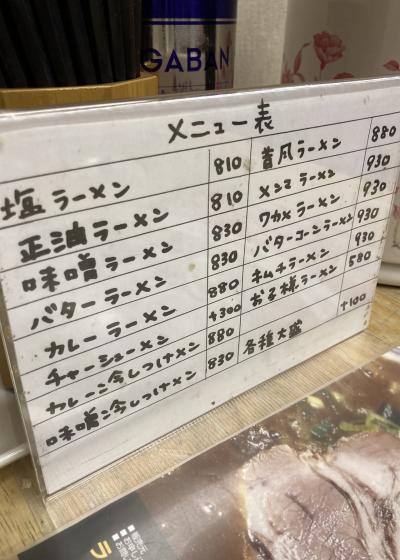 GABAN
メニュー表
塩ラーメン 810
正油ラーメン 810
味噌ラーメン 830
バターラーメン 830
カレーラーメン 880
チャーシューメン +300
カレー冷しつけメン 880
味噌冷しつけメン 830
昔風ラーメン 880
メンマラーメン 930
ワカメラーメン 930
バターコーンラーメン 930
キムチラーメン 930
お子様ラーメン 580
各種大盛 +100
ラ